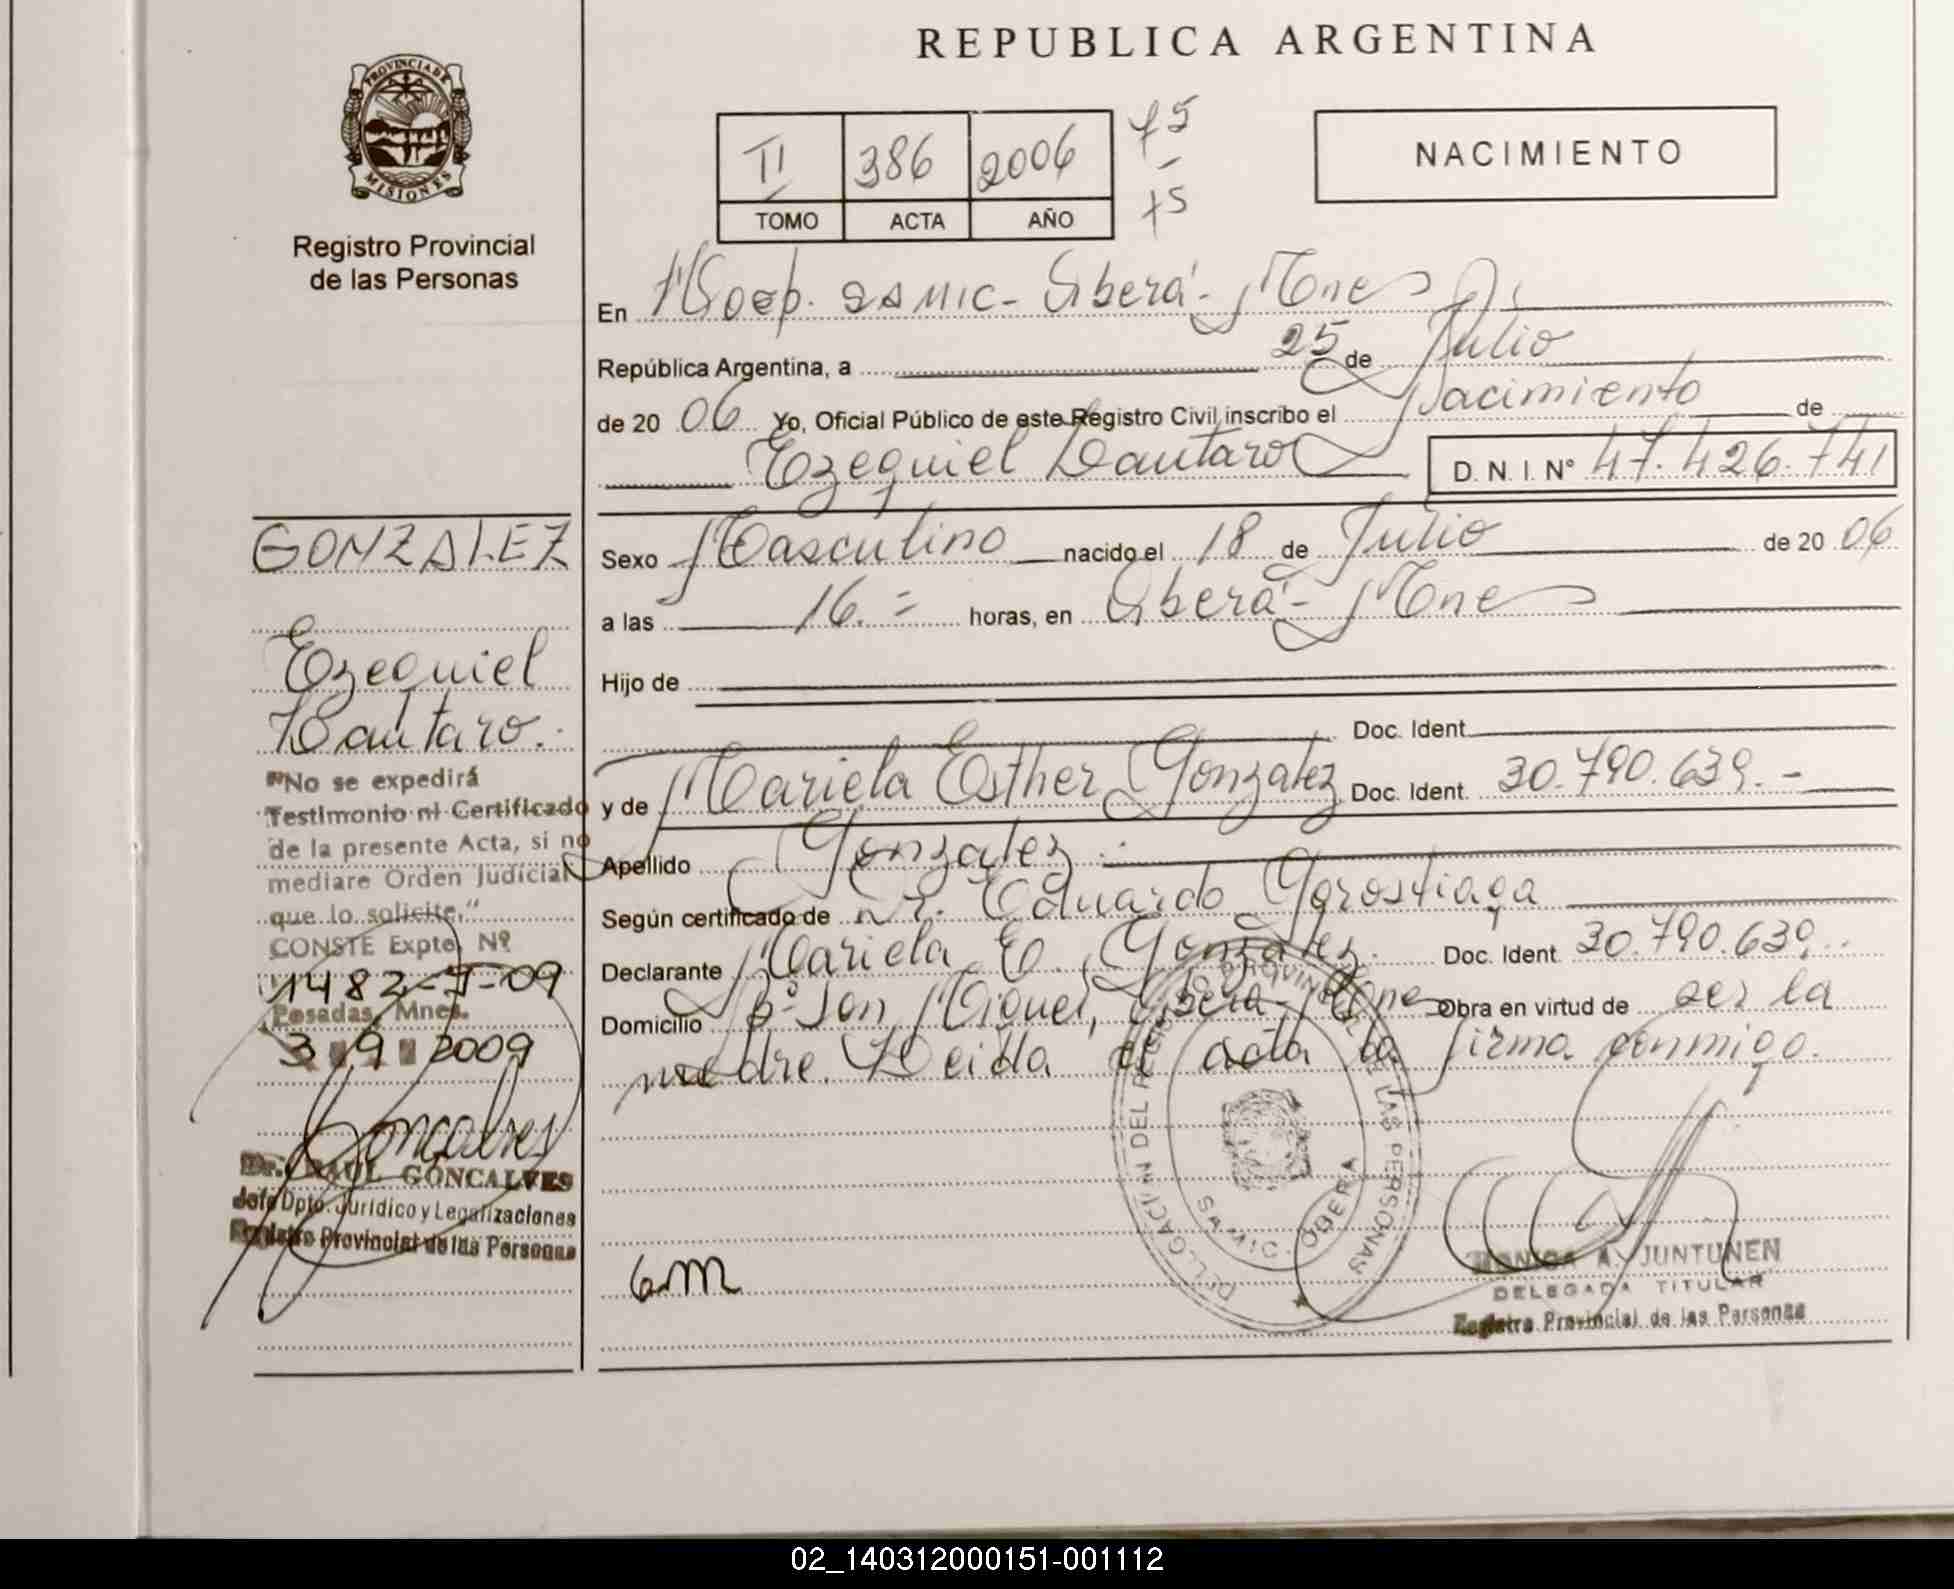 REPUBLICA ARGENTINA
PROVINCIA DE MISIONES
Registro Provincial
de las Personas
II 386 2006
TOMO ACTA AÑO
75
-
75
NACIMIENTO
En Hosp. SAMIC - Oberá - Mnes
República Argentina, a 25 de Julio
de 20 06 Yo, Oficial Público de este Registro Civil inscribo el Nacimiento de
Ezequiel Lautaro D. N. I. Nº 47.426.741
Sexo Masculino nacido el 18 de Julio de 20 06
a las 16.= horas, en Oberá - Mnes
Hijo de
Doc. Ident.
y de Mariela Esther Gonzalez Doc. Ident. 30.790.639.-
Apellido Gonzalez.
Según certificado de Dr. Eduardo Gorostiaga
Declarante Mariela E. Gonzalez. Doc. Ident. 30.790.639.
Domicilio Bº San Miguel, Oberá - Mnes Obra en virtud de ser la
madre. Leida el acta la firma conmigo.
GONZALEZ
Ezequiel
Lautaro.
"No se expedirá
Testimonio ni Certificado
de la presente Acta, si no
mediare Orden Judicial
que lo solicite."
CONSTE Expte. Nº
1482-J-09
Posadas, Mnes.
3 9 2009
Goncalves
Dr. RAUL GONCALVES
Jefe Dpto. Jurídico y Legalizaciones
Registro Provincial de las Personas
DELEGACION DEL REGISTRO PROVINCIAL DE LAS PERSONAS
S.A.M.I.C. - OBERA
MONICA A. JUNTUNEN
DELEGADA TITULAR
Registro Provincial de las Personas
02_140312000151-001112